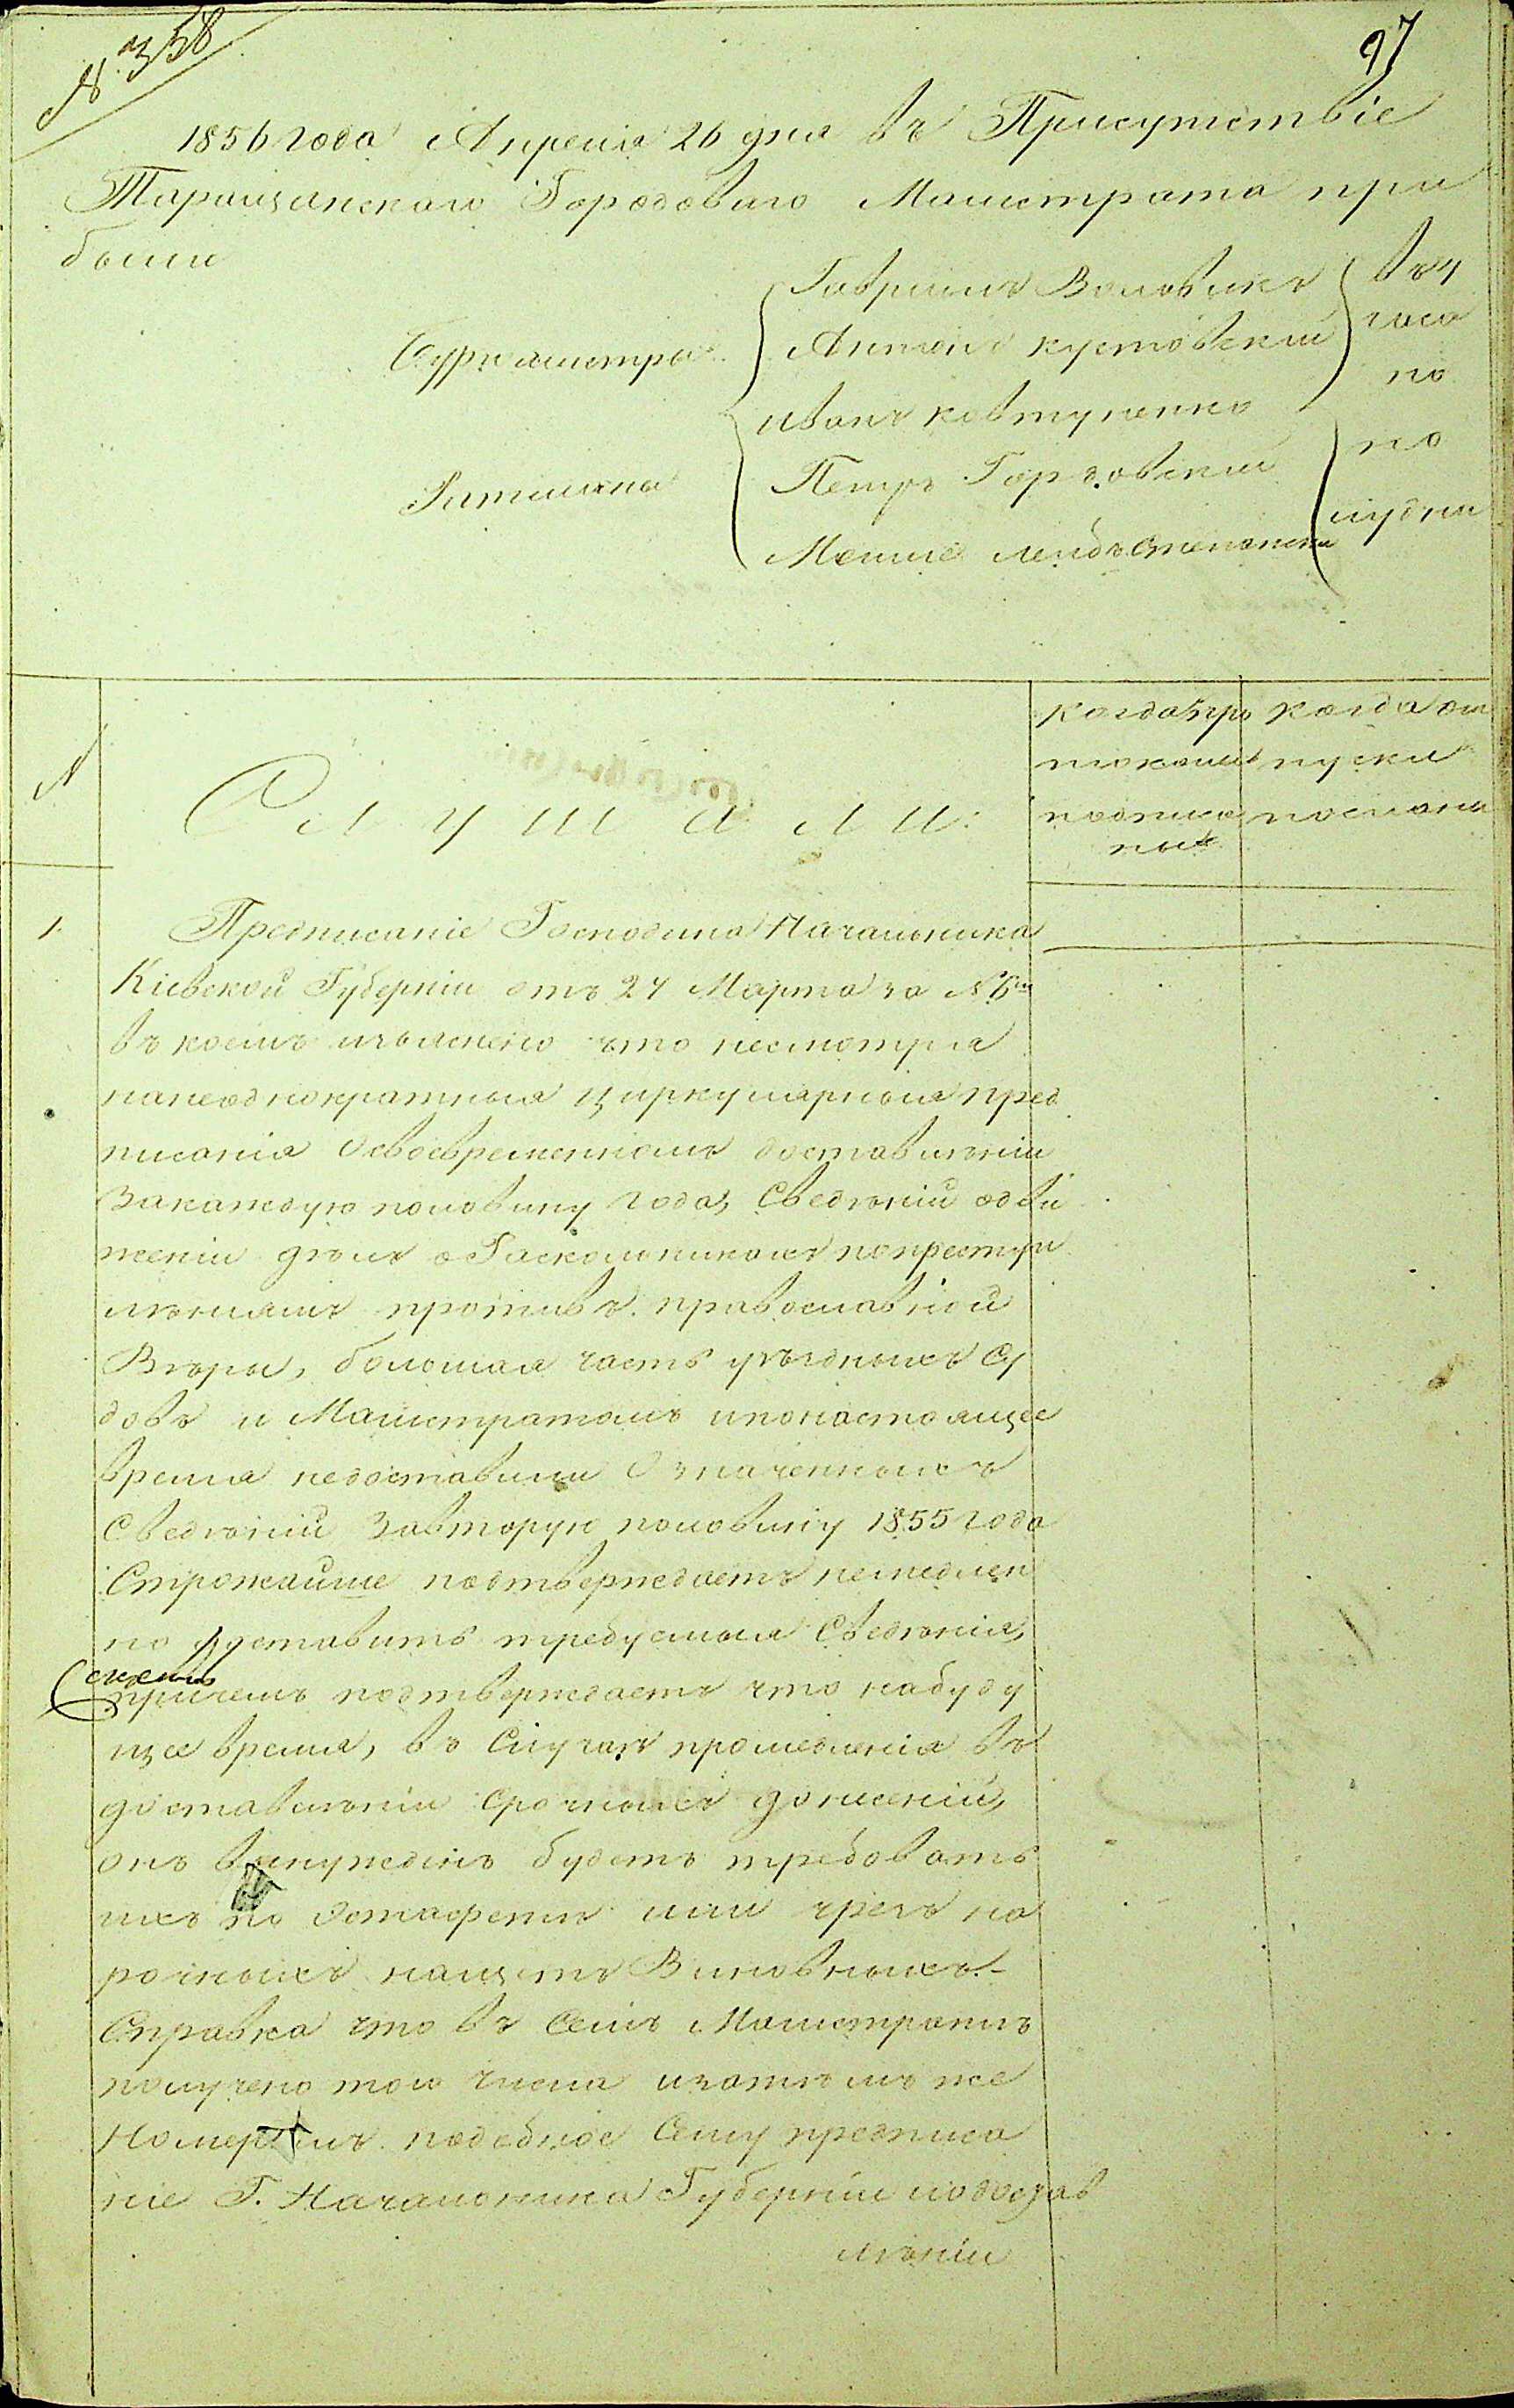 № 358
97
1856 года Апреля 26 дня въ Присутствіе
Таращанскаго Городоваго Магистрата при
были
Бургомистры
Гавріилъ Воловикъ
Антонъ Кустовскій
Ратманы
Иванъ Ковтуненко
Петръ Горговскій
Мошко Лейбъ
въ
часа
по
по
лудни
№
Слушали:
когда про
токолы
подписа
ны
когда от
пуски
посланы
1.
Предписаніе Господина Начальника
Кіевской Губерніи отъ 24 Марта за №
въ коемъ изъяснено что несмотря
нанеоднократныя циркулярныя пред
писанія Освоевременномъ доставленіи
Закаждую половину года, Сведѣній одви
женіи дѣлъ оРаскольникахъ попреступ
лѣніямъ противъ православной
Вѣры, большая часть уѣздныхъ Су
довъ и Магистратомъ ипонастоящее
время недоставили Означенныхъ
Сведѣній Завторую половину 1855 года
Строжайше подтверждаетъ немедлен
но доставить требуемыя Сведѣнія,
съ тѣмъ
причемъ подтверждаетъ что набуду
щее время, въ Случаѣ промедленія въ
доставлѣніи Срочныхъ донесеній,
онъ вынужденъ будетъ требовать
ихъ по Эстафетѣ или чрезъ на
рочныхъ насчетъ Виновныхъ.-
Справка что въ Семъ Магистратѣ
получено того числа изатѣмъ же
Номеромъ подобное Сему предписа
ніе Г. Начальника Губерніи одостав
лѣніи